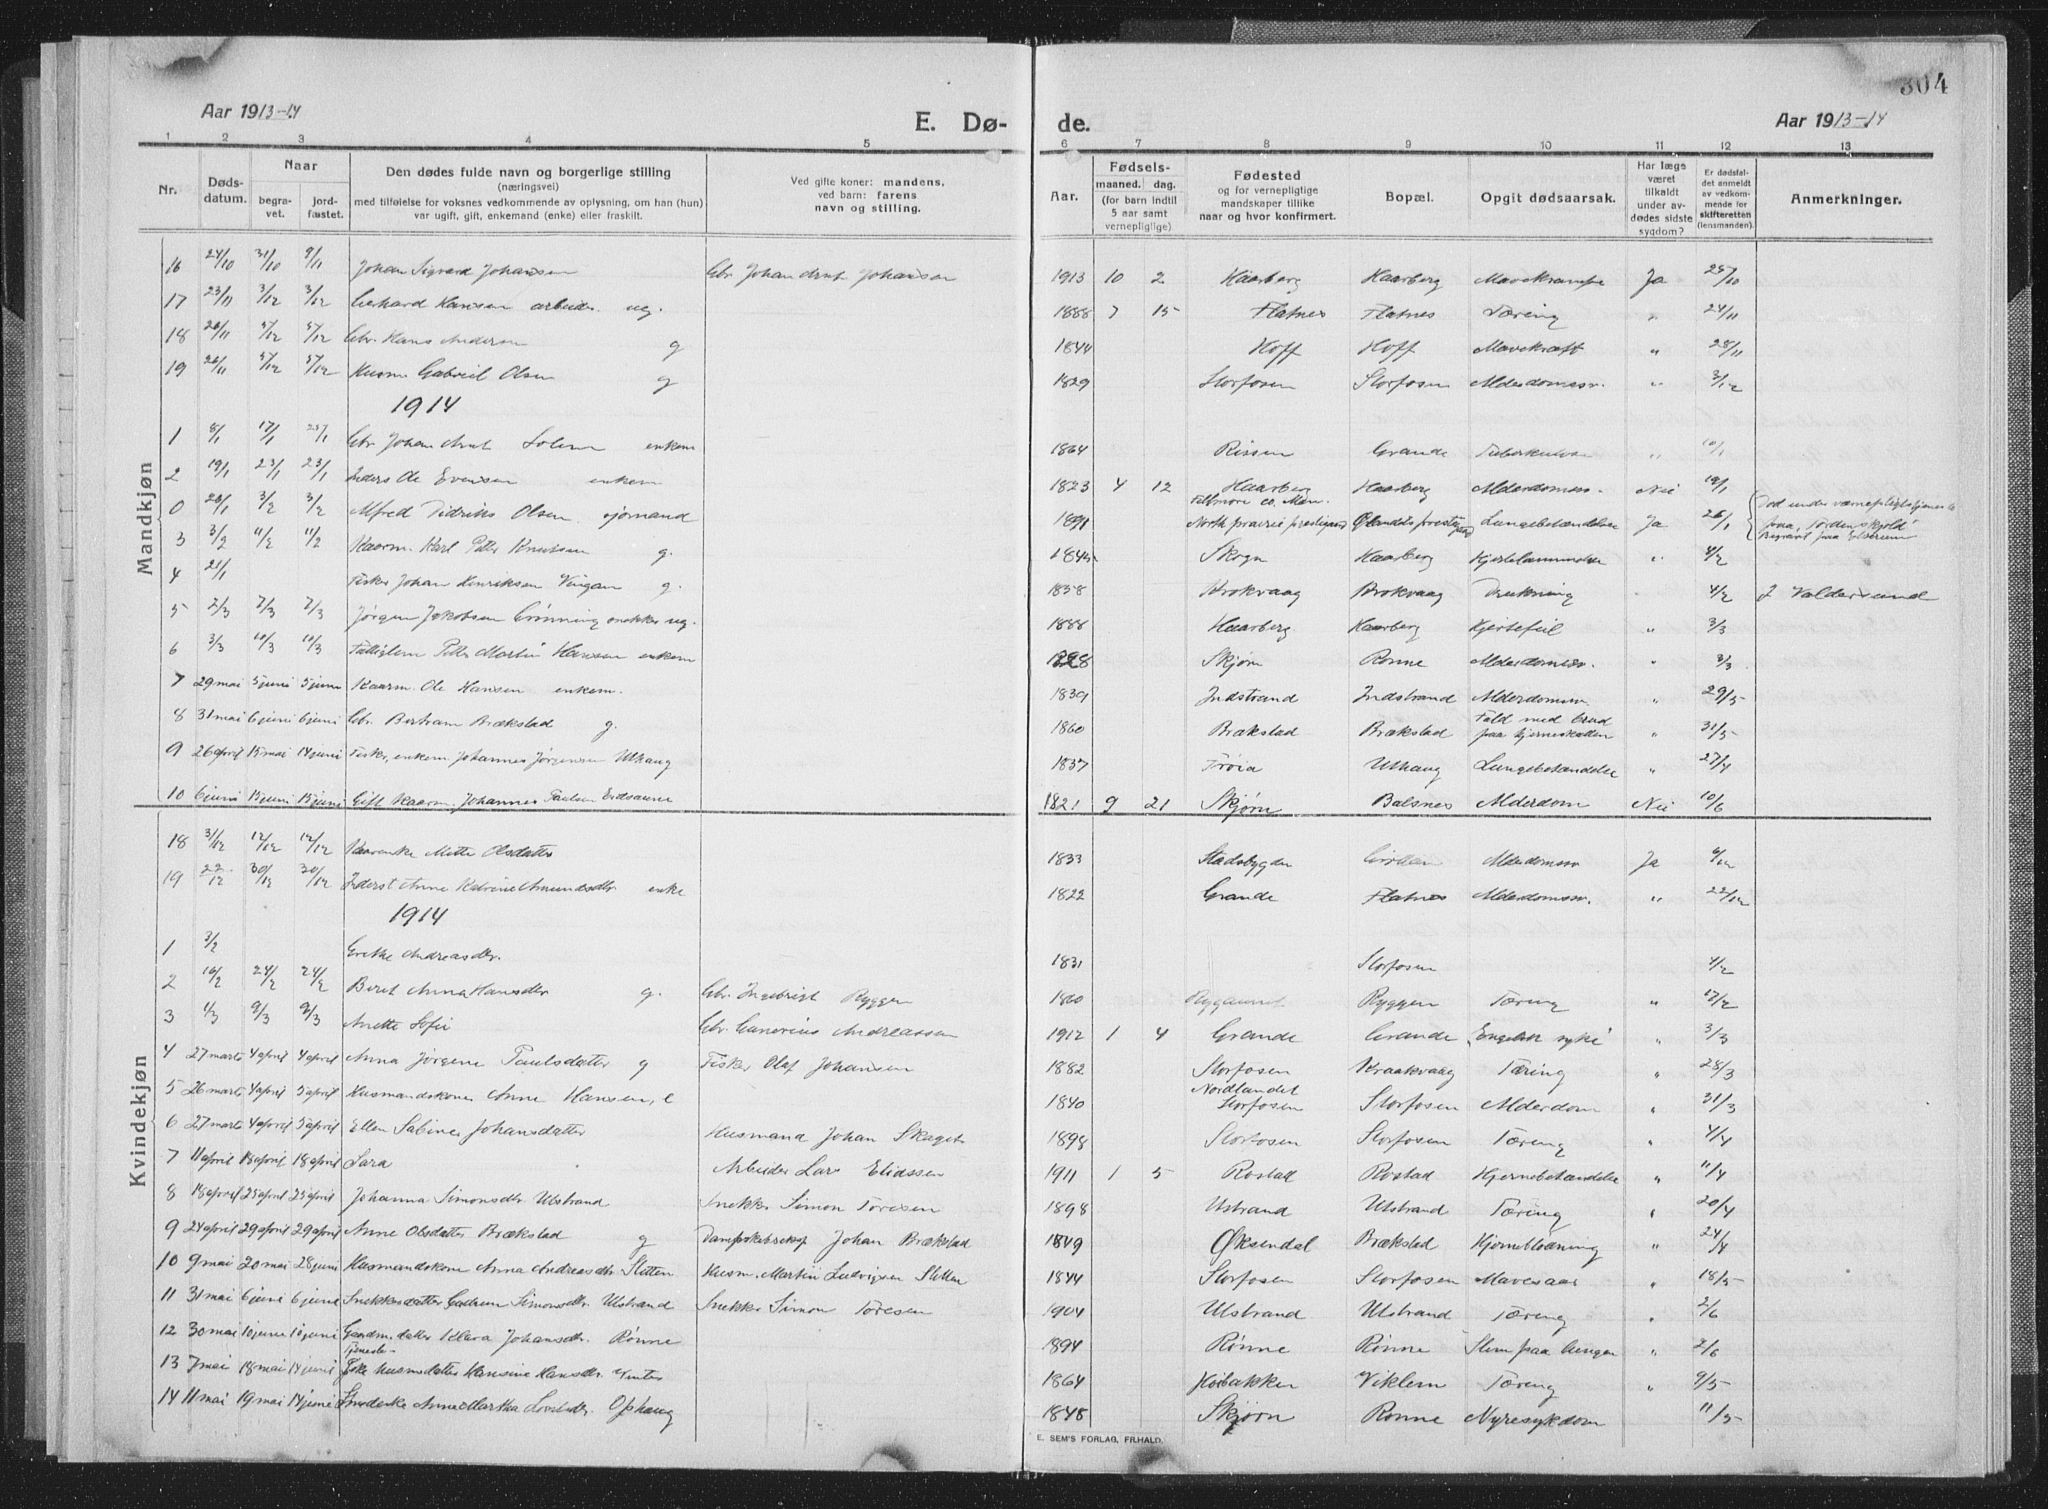 304
Aar 1913-14
E. Dø-
de.
Aar 1913-14
1 2 3 4 5 6 7 8 9 10 11 12 13
Nr.
Døds-
datum.
Naar
begra-
vet.
jord-
fæstet.
Den dødes fulde navn og borgerlige stilling
(næringsvei)
med tilføielse for voksnes vedkommende av oplysning, om han (hun)
var ugift, gift, enkemand (enke) eller fraskilt.
Ved gifte koner: mandens,
ved barn: farens
navn og stilling.
Aar.
Fødsels-
maaned. dag.
(for barn indtil
5 aar samt
vernepligtige)
Fødested
og for vernepligtige
mandskaper tillike
naar og hvor konfirmert.
Bopæl.
Opgit dødsaarsak.
Har læge
været
tilkaldt
under av-
dødes sidste
sygdom?
Er dødsfal-
det anmeldt
av vedkom-
mende for
skifteretten
(lensmanden).
Anmerkninger.
Mandkjøn
16 24/10 31/10 9/11 Johan Sigvard Johansen Gbr. Johan Arnt Johansen 1913 10 2 Haarberg Haarberg Mavekrampe Ja 25/10
17 23/11 3/12 3/12 Gerhard Hansen arbeider ug. 1888 7 15 Flatnes Flatnes Tæring " 24/11
18 26/11 5/12 5/12 Gbr. Hans Andersen g 1844 Hoff Hoff Mavekræft " 28/11
19 26/11 5/12 5/12 Husm Gabriel Olsen g 1829 Storfosen Storfosen Alderdomssv. " 3/12
1914
1 8/1 17/1 25/1 Gbr Johan Arnt Solem enkem 1864 Rissen Grande Tuberkulose " 10/1
2 19/1 23/1 23/1 Inders Ole Evensen enkem 1823 4 12 Haarberg Haarberg Alderdomssv. Nei 19/1
0 20/1 3/2 3/2 Alfred Didriks Olsen sjømand 1891 Ørlandets prestegaard Lungebetændelse Ja 26/1
3 3/2 11/2 11/2 Kaarm. Karl Peter Knutsen g. 1845 Skogn Haarberg Hjertelammelse " 4/2
4 21/1 Fisker Johan Henriksen Vingan g. 1858 Brokvaag Brokvaag Drukning 4/2 I Valdersund
5 2/3 7/3 7/3 Jørgen Jakobsen Grønning snekker ug. 1888 Haarberg Haarberg Hjertefeil " 3/3
6 3/3 10/3 10/3 Fattiglem Peter Martin Hansen enkem Skjørn Rønne Alderdomssv. " 3/3
7 29 mai 5 juni 5 juni Kaarm. Ole Hansen enkem. 1839 Indstrand Indstrand Alderdomssv " 29/5
8 31 mai 6 juni 6 juni Gbr. Bertram Brækstad g. 1860 Brækstad Brækstad Fald med brud paa hjerneskallen " 31/5
9 26 april 15 mai 14 juni Fisker, enkem. Johannes Jørgensen Uthaug 1837 Frøia Uthaug Lungebetændelse " 27/4
10 6 juni 15 juni 15 juni Gift Kaarm. Johannes Paulsen Eidsaune 1821 9 21 Skjørn Balsnes Alderdom Nei 10/6
Kvindekjøn
18 31/12 12/12 12/12 Kaarenke Mette Olsdatter 1833 Stadsbygden Alderdomssv Ja 6/12
19 22/12 30/12 30/12 Inderst Anne Katrine Amundsdtr enke 1822 Grande Flatnes Alderdomssv. " 22/12
1914
1 3/2 Grethe Andreasdtr. 1831 Storfosen 4/2
2 16/2 24/2 24/2 Beret Anna Hansdtr g. Gbr. Ingebrigt Ryggen 1860 Ryggen Tæring " 17/2
3 1/3 9/3 9/3 Anette Sofie Gbr. Andreassen 1912 1 4 Grande Grande Engelsk syke " 3/3
4 27 marts 4 april 4 april Anna Jørgene Paulsdatter g Fisker Olaf Johansen 1882 Storfosen Kraakvaag Tæring " 28/3
5 26 marts 4 april 5 april Husmandskone Anne Hansen, e 1840 Nordlandet Storfosen Storfosen Alderdom " 31/3
6 27 marts 4 april 5 april Ellen Sabine Johansdatter Husmand Johan Skaget 1898 Storfosen Storfosen Tæring " 4/4
7 11 april 18 april 18 april Sara Arbeider Lars Eliassen 1911 1 5 Rostad Rostad Hjernebetændelse " 11/4
8 18 april 25 april 25 april Johanna Simonsdtr Ulstrand Snekker Simon Toresen 1898 Ulstrand Ulstrand Tæring " 20/4
9 24 april 29 april 29 april Anne Olsdatter Brækstad g Dampskibseksp Johan Brækstad 1849 Øksendal Brækstad Hjerneblødning " 24/4
10 9 mai 20 mai 28 juni Husmandskone Anna Andreasdtr Sletten Husm. Martin Ludvigsen Sletten 1844 Storfosen Storfosen Mavesaar " 18/5
11 31 mai 6 juni 6 juni Snekkerdatter Simonsdtr. Ulstrand Snekker Simon Toresen 1904 Ulstrand Ulstrand Tæring " 2/6
12 30 mai 10 juni 10 juni Gaardm.datter Klara Johansdtr. Rønne 1894 Rønne Rønne Slim paa lungen " 2/6
13 7 mai 18 mai 14 juni Tjeneste Husmdatter Hansine Hansdtr. 1864 Høibakken Viklem Tæring " 9/5
14 11 mai 19 mai 14 juni Anne Martha Ophaug 1848 Skjørn Rønne Nyresykdom 11/5
E. SEM'S FORLAG, FR.HALD.